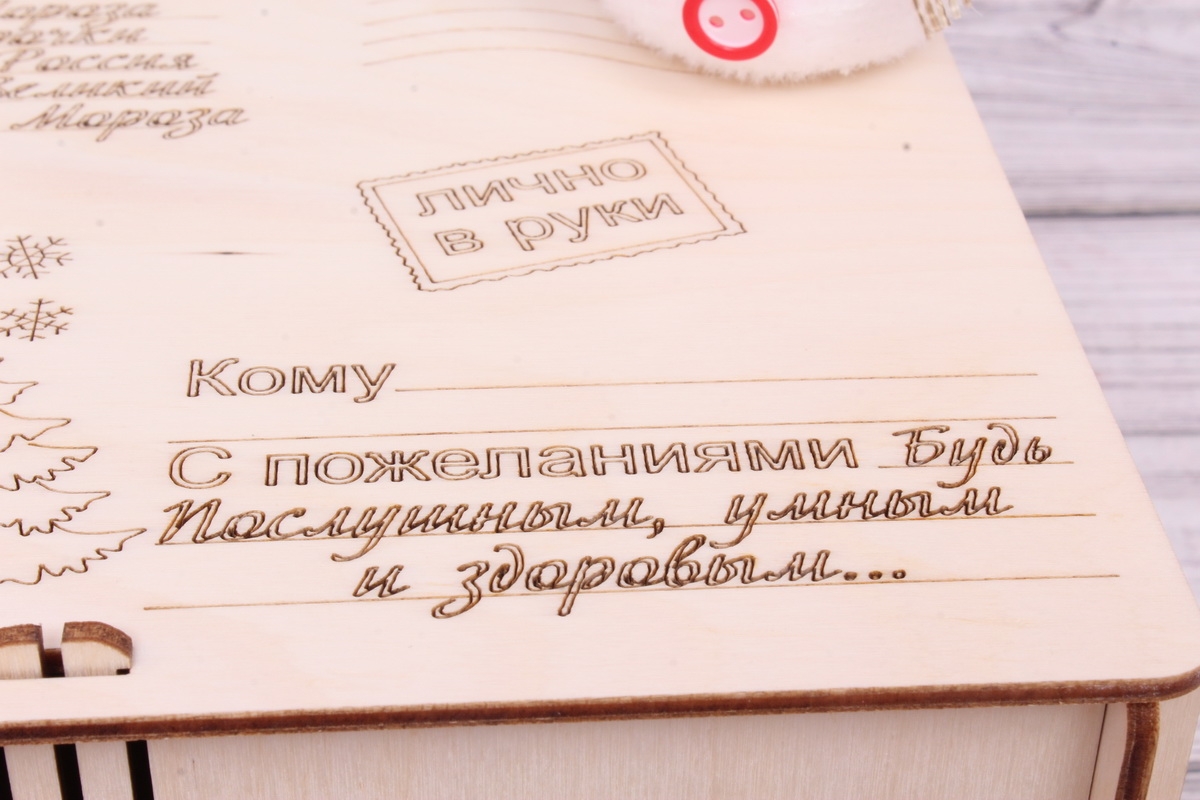 Мороза
Россия
Великий
Мороза
лично
в руки
Кому
С пожеланиями Будь
Послушным, умным
и здоровым...